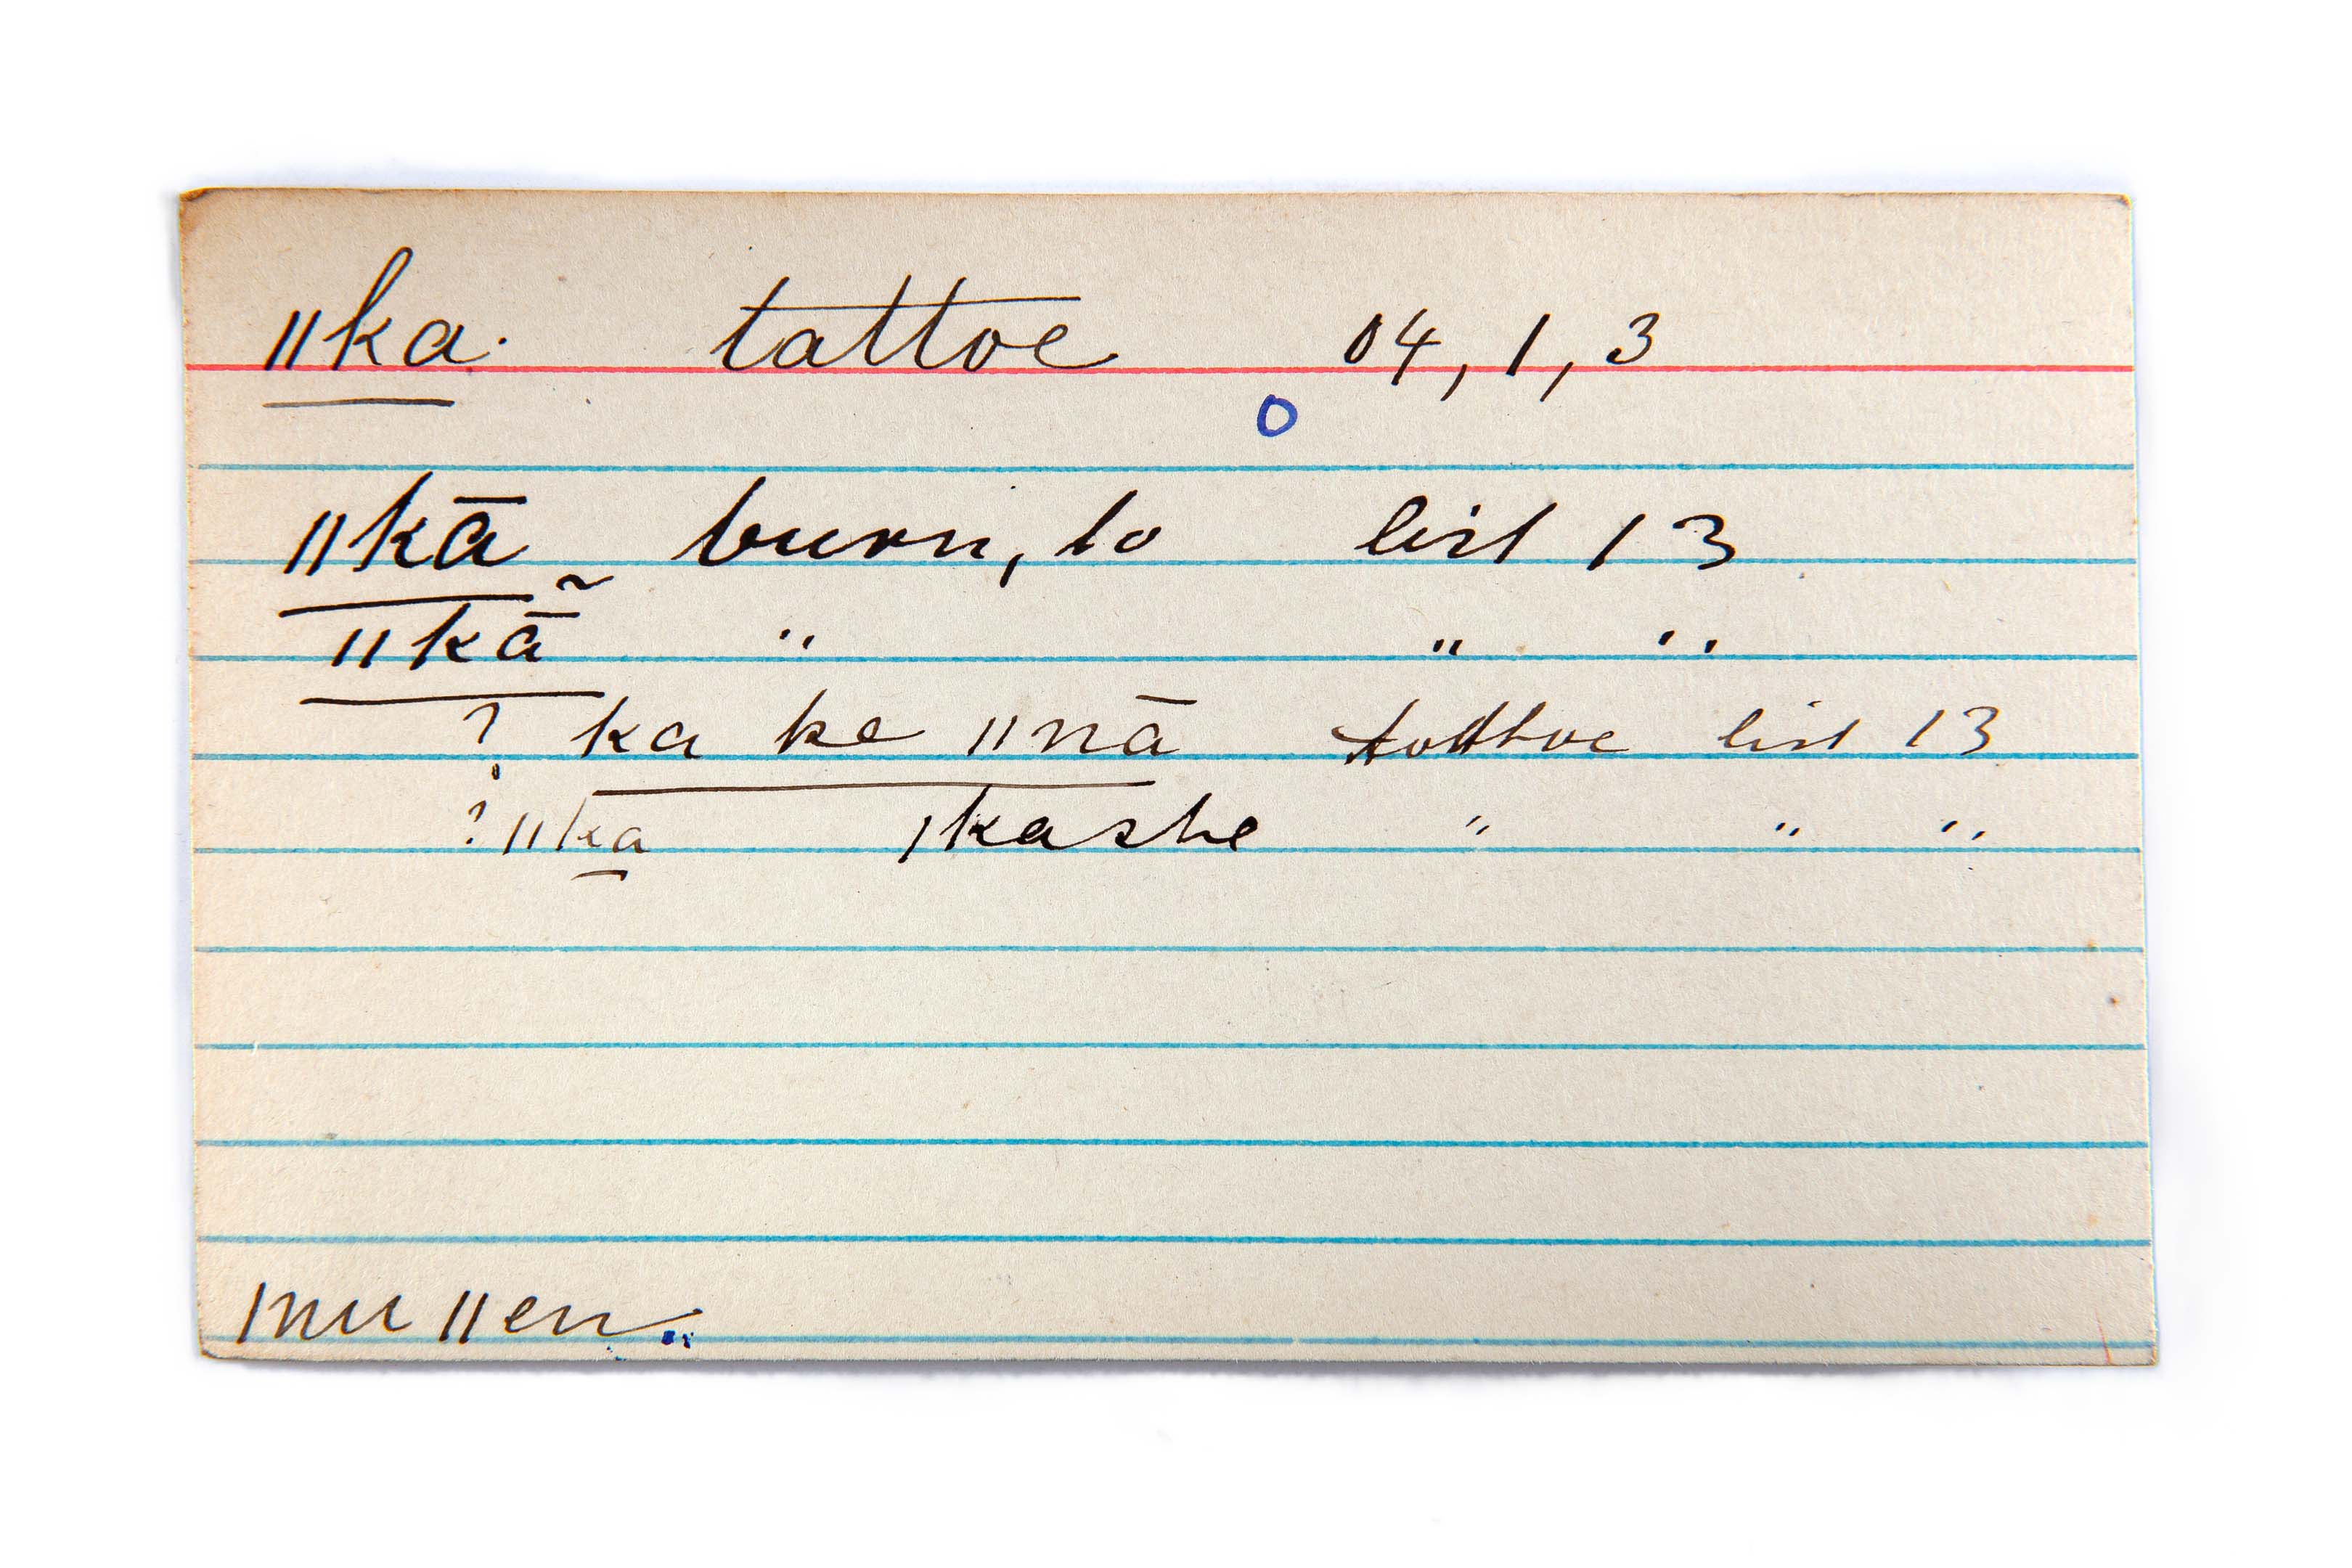 ǁka. tattoe 04, 1, 3
o
ǁkā burn, to list 13
ǁkā̃ " " "
? ka ke ǁnā tattoe list 13
? ǁka ǀkashe " " "
ǀnu ǁen.